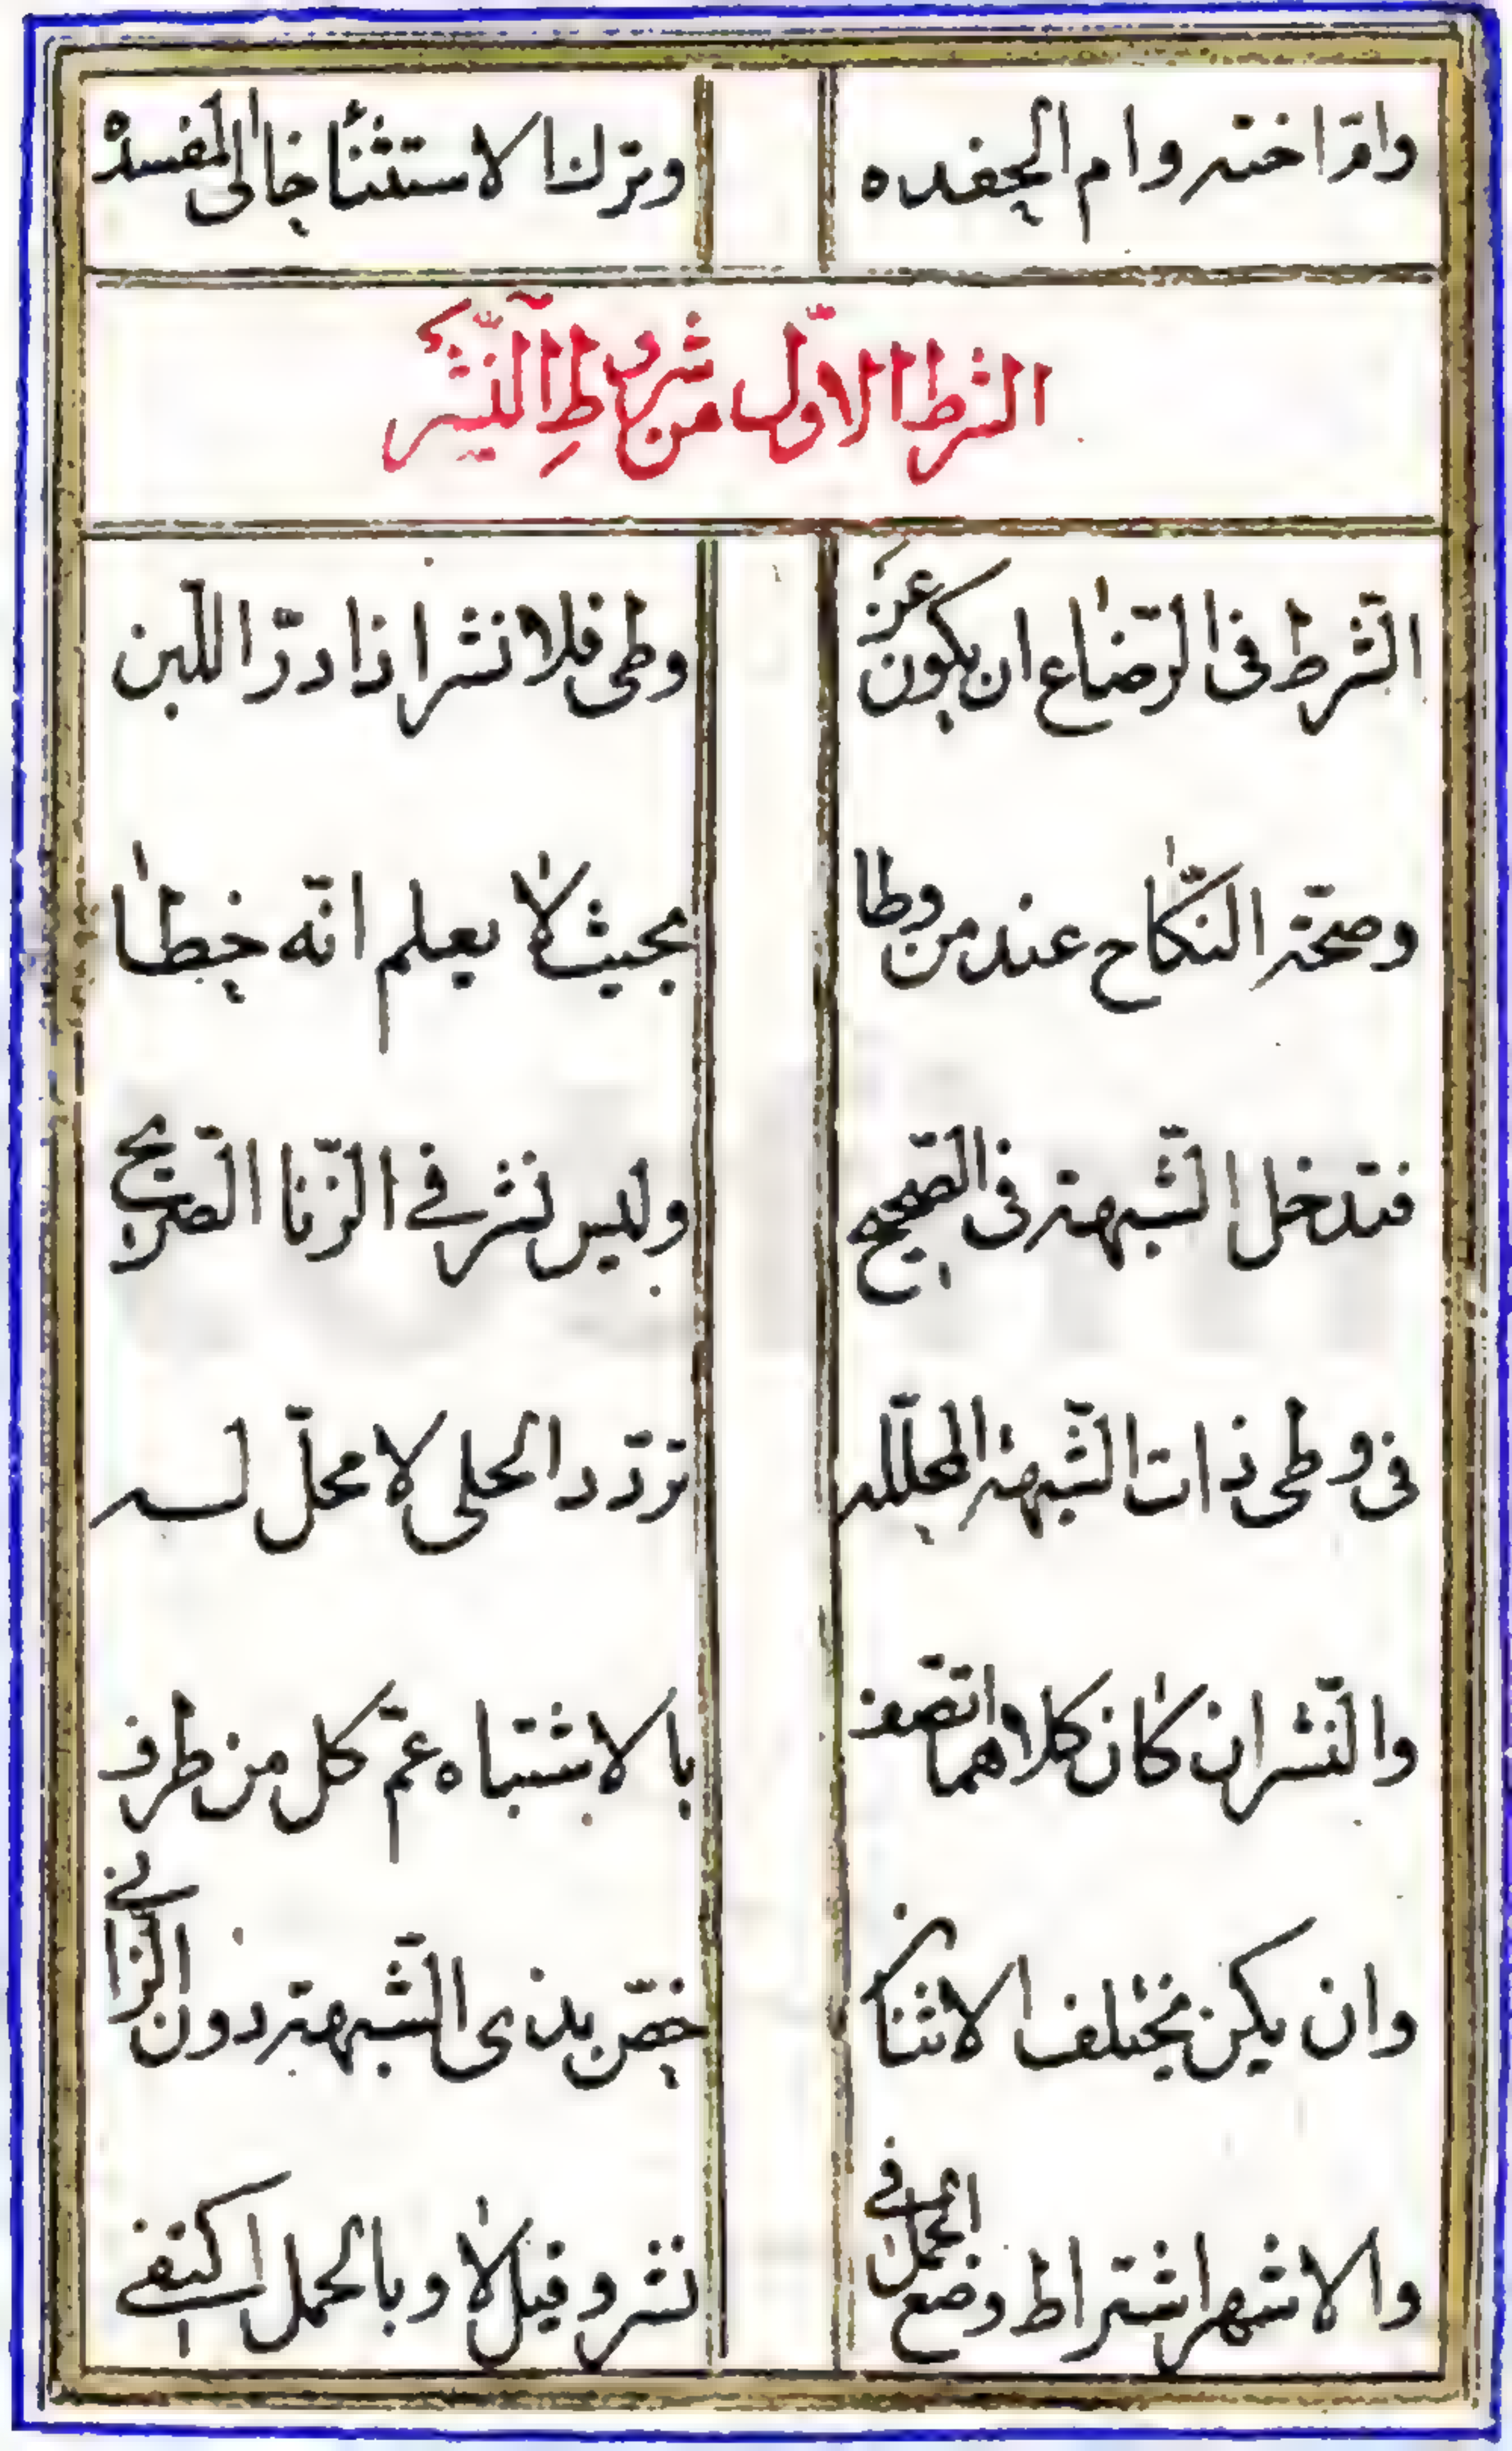 وامّ اخته وام الحفده وترك الاستثنا خالى المفسده
الشرط الاوّل من شروط النّشر
الشّرط فى الرّضاع ان يكون عن وطى فلا نشر اذا درّ اللبن
وصحّة النّكاح عند من وطا بحيث لا يعلم انّه خطا
فتدخل الشّبهة فى الصّحيح وليس نشر في الزّنا الصّريح
فى وطى ذات الشّبهة المحلّله تردّد الحلى لا محلّ له
والنّشر ان كان كلاهما اتّصف بالاشتباه عمّ كل من طرف
وان يكن مختلف الاثنان خصّ بذى الشّبهة دون الزّاني
والاشهر اشتراط وضع الحمل في نشر وقيل لا وبالحمل اكتفي